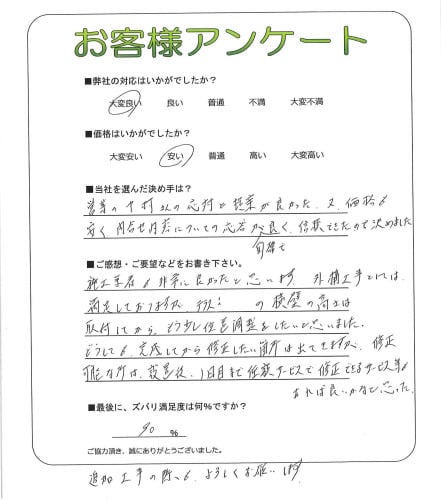 お客様アンケート
■弊社の対応はいかがでしたか?
大変良い 良い 普通 不満 大変不満
■価格はいかがでしたか?
大変安い 安い 普通 高い 大変高い
■当社を選んだ決め手は?
営業の中村さんの応対と提案が良かった。又、価格も
安く、問合せ内容についての応答が良く、信頼できたので決めました
■ご感想・ご要望などをお書き下さい。
施工業者も非常に良かったと思います。外構工事としては、
満足しておりますが、テラス の横壁の高さは
取付してから、もう少し位置調整をしたいと思いました。
どうしても、完成してから修正したい箇所は出てきますが、修正
可能な所は、設置後、1日目まで 無料サービスで修正できるサービス等も
あれば良いかなと思った。
■最後に、ズバリ満足度は何%ですか?
90 %
ご協力頂き、誠にありがとうございました。
追加工事の際も、よろしくお願いします